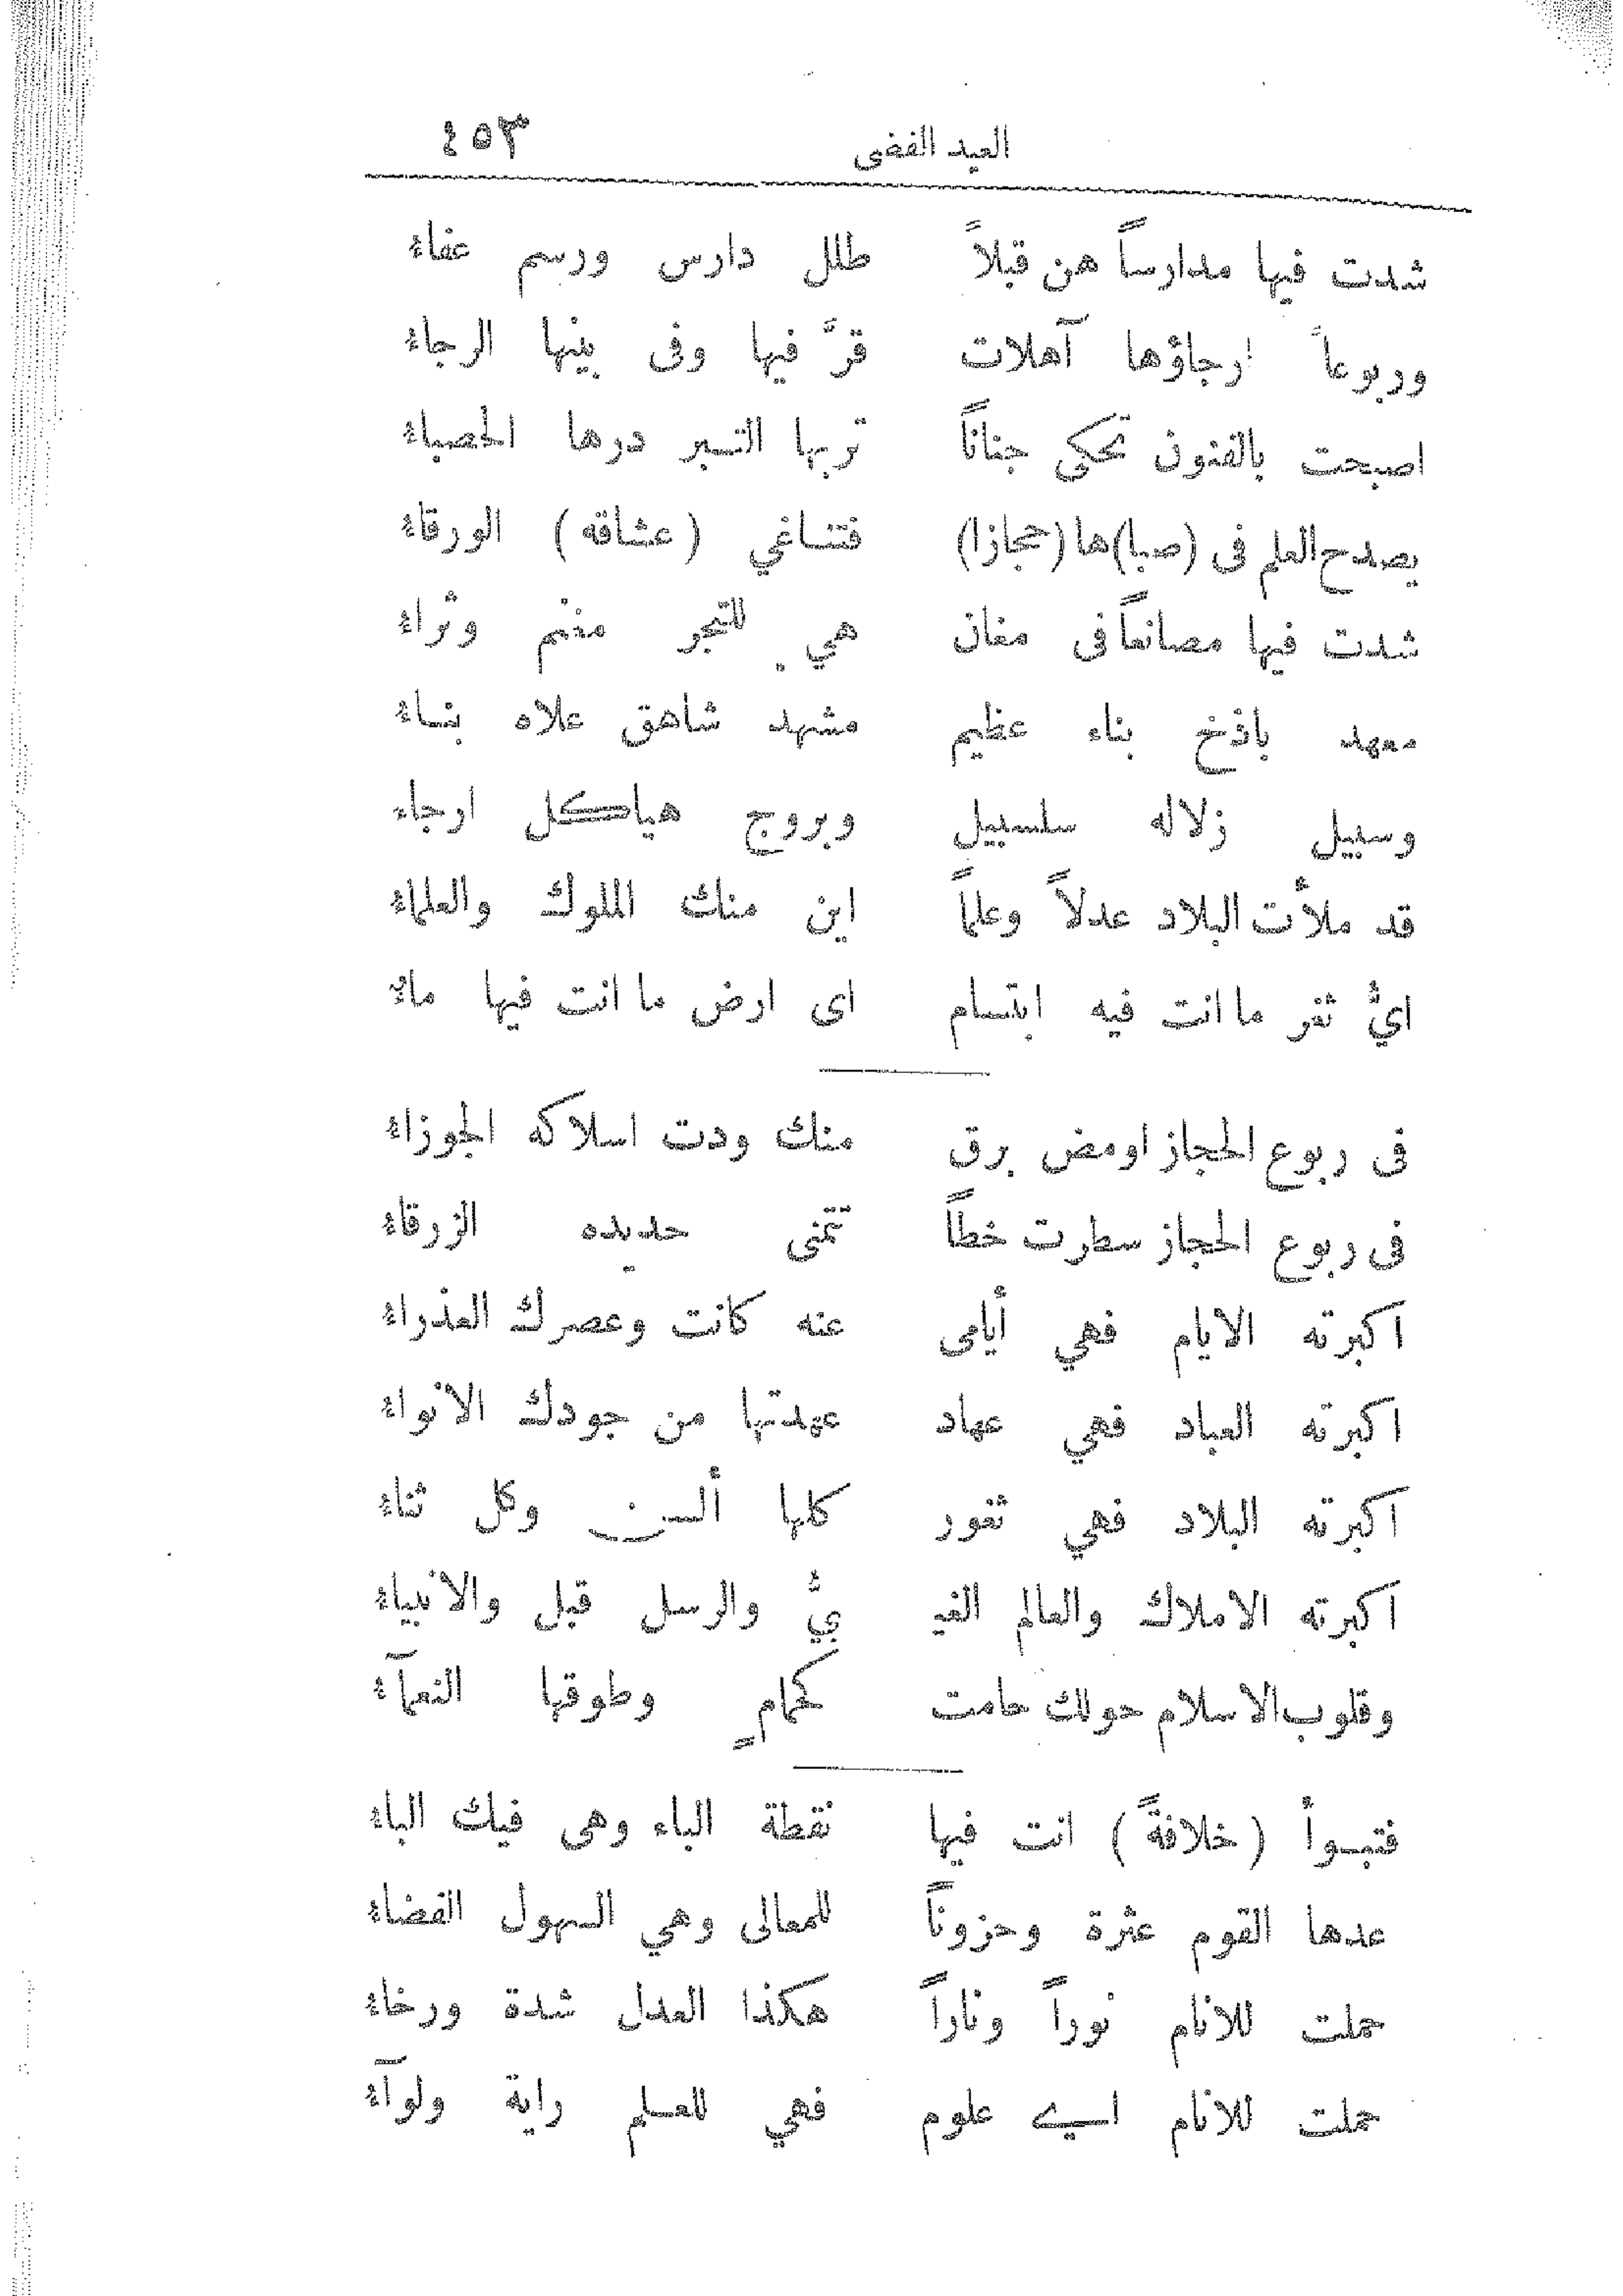 العيد الفضى ٤٥٣
شدت فيها مدارساً هن قبلاً طلل دارس ورسم عفاءُ
وربوعاً ارجاؤها آهلات قرَّ فيها وفى بينها الرجاءُ
اصبحت بالفنون تحكى جناناً تربها التبر درها الحصباءُ
يصدح العلم فى (صبا)ها (حجازا) فتناغي (عشاقه) الورقاءُ
شدت فيها مصانعاً فى مغان هي للتجر مغنم وثراءُ
معهد باذخ بناء عظيم مشهد شاهق علاه بناءُ
وسبيل زلاله سلسبيل وبروج هياكل ارجاء
قد ملأت البلاد عدلاً وعلماً اين منك الملوك والعلماءُ
ايُّ ثغر ما انت فيه ابتسام اى ارض ما انت فيها ماءُ
فى ربوع الحجاز اومض برق منك ودت اسلاكه الجوزاءُ
فى ربوع الحجاز سطرت خطاً تتمنى حديده الزرقاءُ
اكبرته الايام فهي أيامى عنه كانت وعصرك العذراءُ
اكبرته العباد فهي عهاد عهدتها من جودك الانواءُ
اكبرته البلاد فهي ثغور كلها ألسن وكل ثناءُ
اكبرته الاملاك والعالم الغيـ ـبيُّ والرسل قبل والانبياءُ
وقلوب الاسلام حولك حامت كحمامٍ وطوقها النعمآءُ
فتبوأ (خلافةً) انت فيها نقطة الباء وهى فيك الباءُ
عدها القوم عثرة وحزوناً للمعالى وهي السهول الفضاءُ
حملت للانام نوراً وناراً هكذا العدل شدة ورخاءُ
حملت للانام اسے علوم فهي للعلم راية ولوآءُ